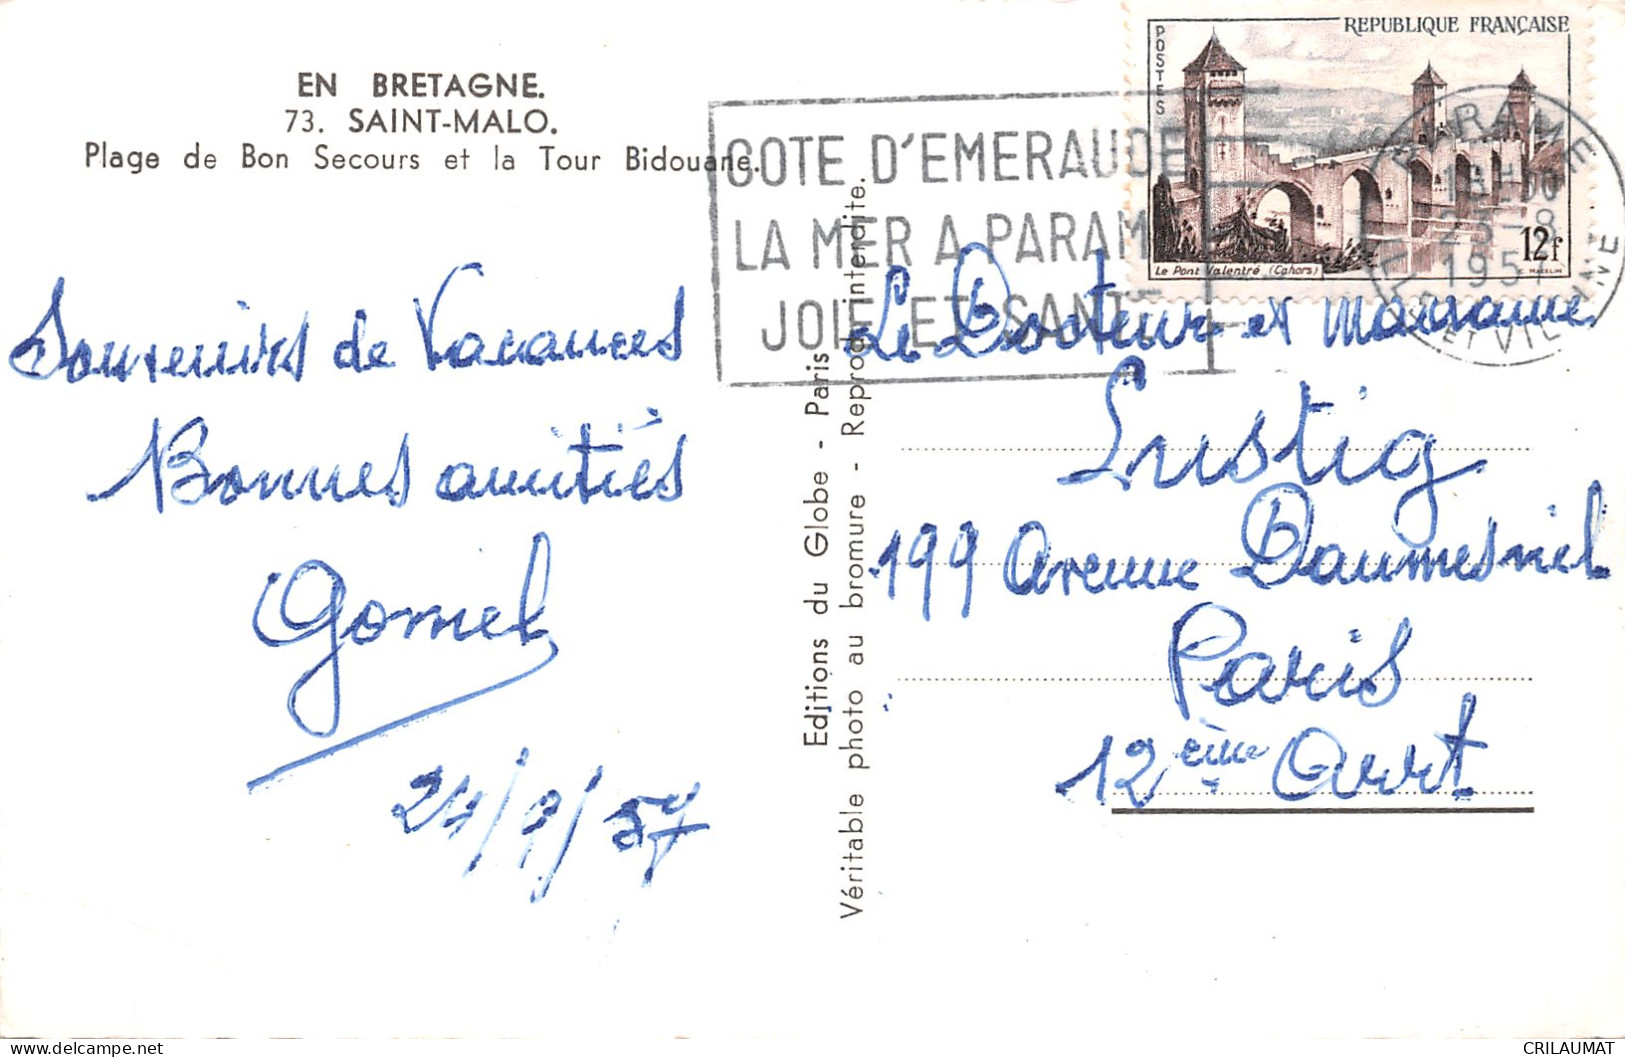 EN BRETAGNE.
73. SAINT-MALO.
Plage de Bon Secours et la Tour Bidouane.
Souvenirs de Vacances
Bonnes amitiés
Gomel
24/9/57
Editions du Globe - Paris
Véritable photo au bromure - Reprod. interdite.
COTE D'EMERAUDE
LA MER A PARAM
JOIE ET SANTE
REPUBLIQUE FRANÇAISE
POSTES
12f
Le Pont Valentré (Cahors)
C. MAZELIN
PARAME
1957
ILLE ET VILAINE
Le Docteur et Madame
Lustig
199 Avenue Daumesnil
Paris
12 eme Arrt
CRILAUMAT